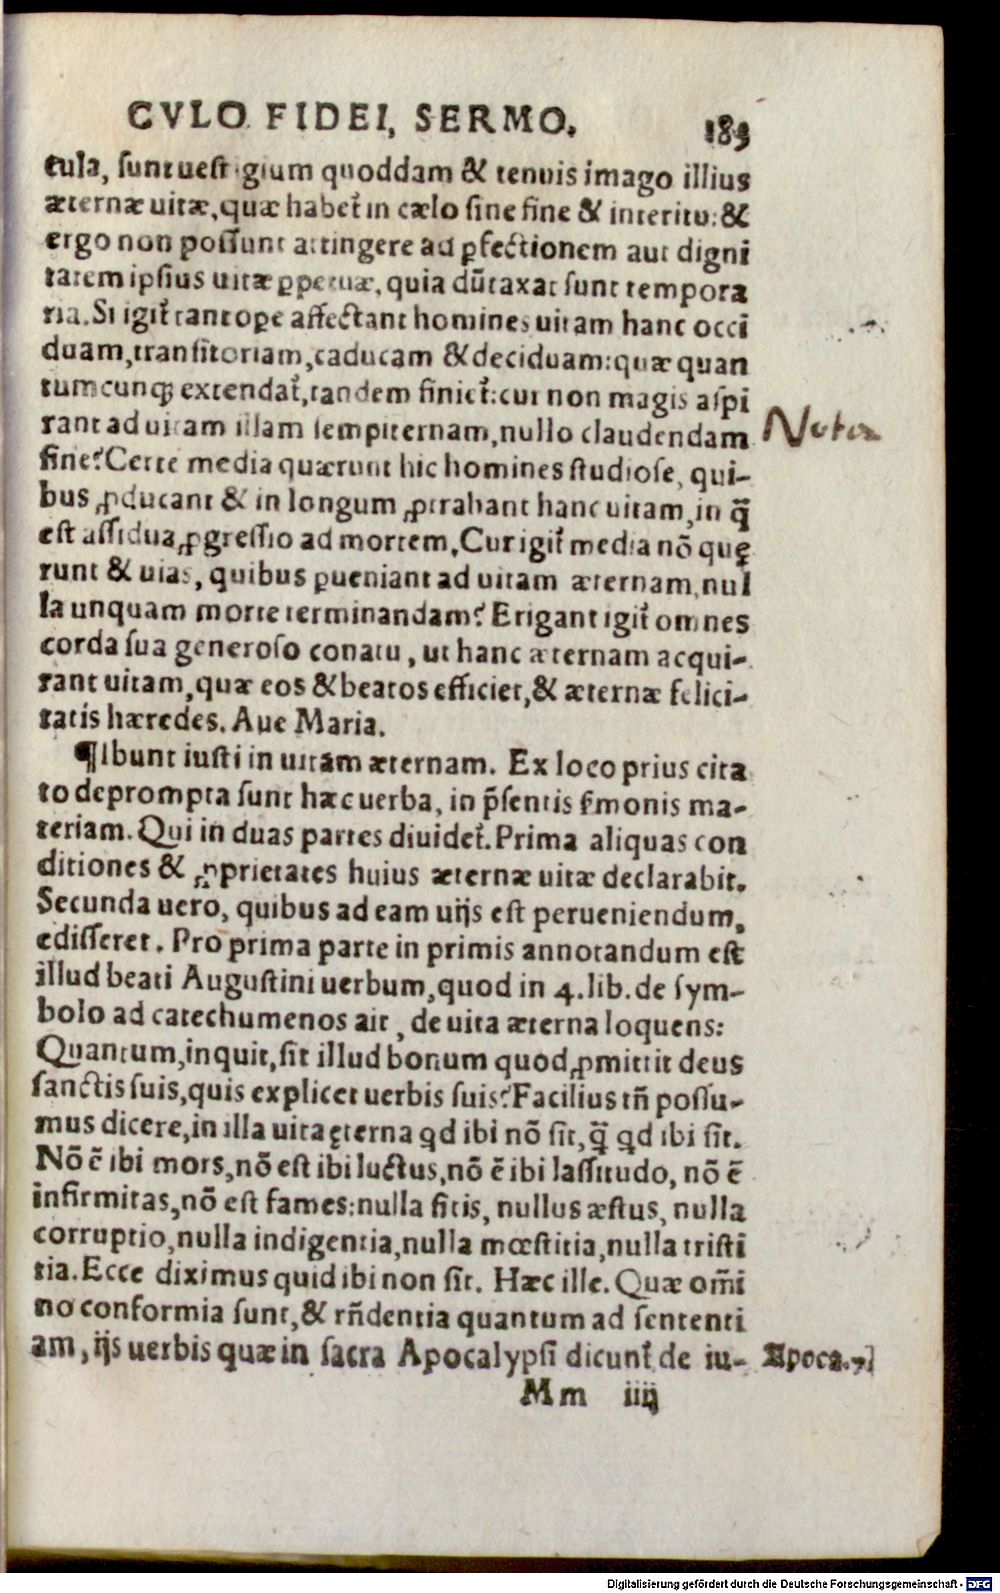 CVLO FIDEI, SERMO. 183
cula, sunt uestigium quoddam & tenuis imago illius
æternæ uitæ, quæ habet᷑ in cælo sine fine & interitu: &
ergo non possunt attingere ad ꝑfectionem aut digni
tatem ipsius uitæ ꝑpetuæ, quia dũtaxat sunt tempora
ria. Si igit᷑ tantoꝑe affectant homines uitam hanc occi
duam, transitoriam, caducam & deciduam: quæ quan
tumcunqꝫ extendat᷑, tandem finiet᷑: cur non magis aspi
rant ad uitam illam sempiternam, nullo claudendam
fine? Certe media quærunt hic homines studiose, qui-
bus ꝓducant & in longum ꝓtrahant hanc uitam, in q̃
est assidua ꝓgressio ad mortem. Cur igit᷑ media nõ quę
runt & uias, quibus ꝑueniant ad uitam æternam, nul
la unquam morte terminandam? Erigant igit᷑ omnes
corda sua generoso conatu, ut hanc æternam acqui-
rant uitam, quæ eos & beatos efficiet, & æternæ felici-
tatis hæredes. Aue Maria.
¶Ibunt iusti in uitam æternam. Ex loco prius cita
to deprompta sunt hæc uerba, in p̃sentis s̃monis ma-
teriam. Qui in duas partes diuidet᷑. Prima aliquas con
ditiones & ꝓprietates huius æternæ uitæ declarabit.
Secunda uero, quibus ad eam uijs est perueniendum,
edisseret. Pro prima parte in primis annotandum est
illud beati Augustini uerbum, quod in 4. lib. de sym-
bolo ad catechumenos ait, de uita æterna loquens:
Quantum, inquit, sit illud bonum quod ꝓmittit deus
sanctis suis, quis explicet uerbis suis? Facilius tñ possu-
mus dicere, in illa uita ęterna qd ibi nõ sit, q̃ qd ibi sit.
Nõ ẽ ibi mors, nõ est ibi luctus, nõ ẽ ibi lassitudo, nõ ẽ
infirmitas, nõ est fames: nulla sitis, nullus æstus, nulla
corruptio, nulla indigentia, nulla mœstitia, nulla tristi
tia. Ecce diximus quid ibi non sit. Hæc ille. Quæ om̃i
no conformia sunt, & rñdentia quantum ad sententi
am, ijs uerbis quæ in sacra Apocalypsi dicunt᷑ de iu-
Mm iiij
Nota
Apoca. 7
Digitalisierung gefördert durch die Deutsche Forschungsgemeinschaft - DFG